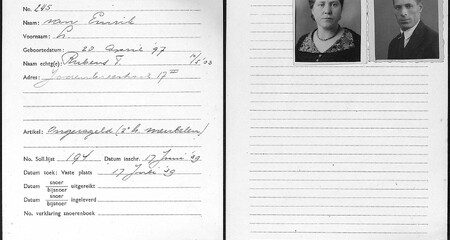 No 285
Naam: van Emrik
Voornaam: L.
Geboortedatum: 28 '97
Naam echtg(e): Rubens T.
Adres: 17 III
Artikel: Ongeregeld (2e h.
No. Soll.lijst 194 Datum inschr. 17 Juni '29
Datum toek: Vaste plaats 17 Juni '29
Datum snoer bijsnoer uitgereikt
Datum snoer bijsnoer ingeleverd
No. verklaring snoerenboek